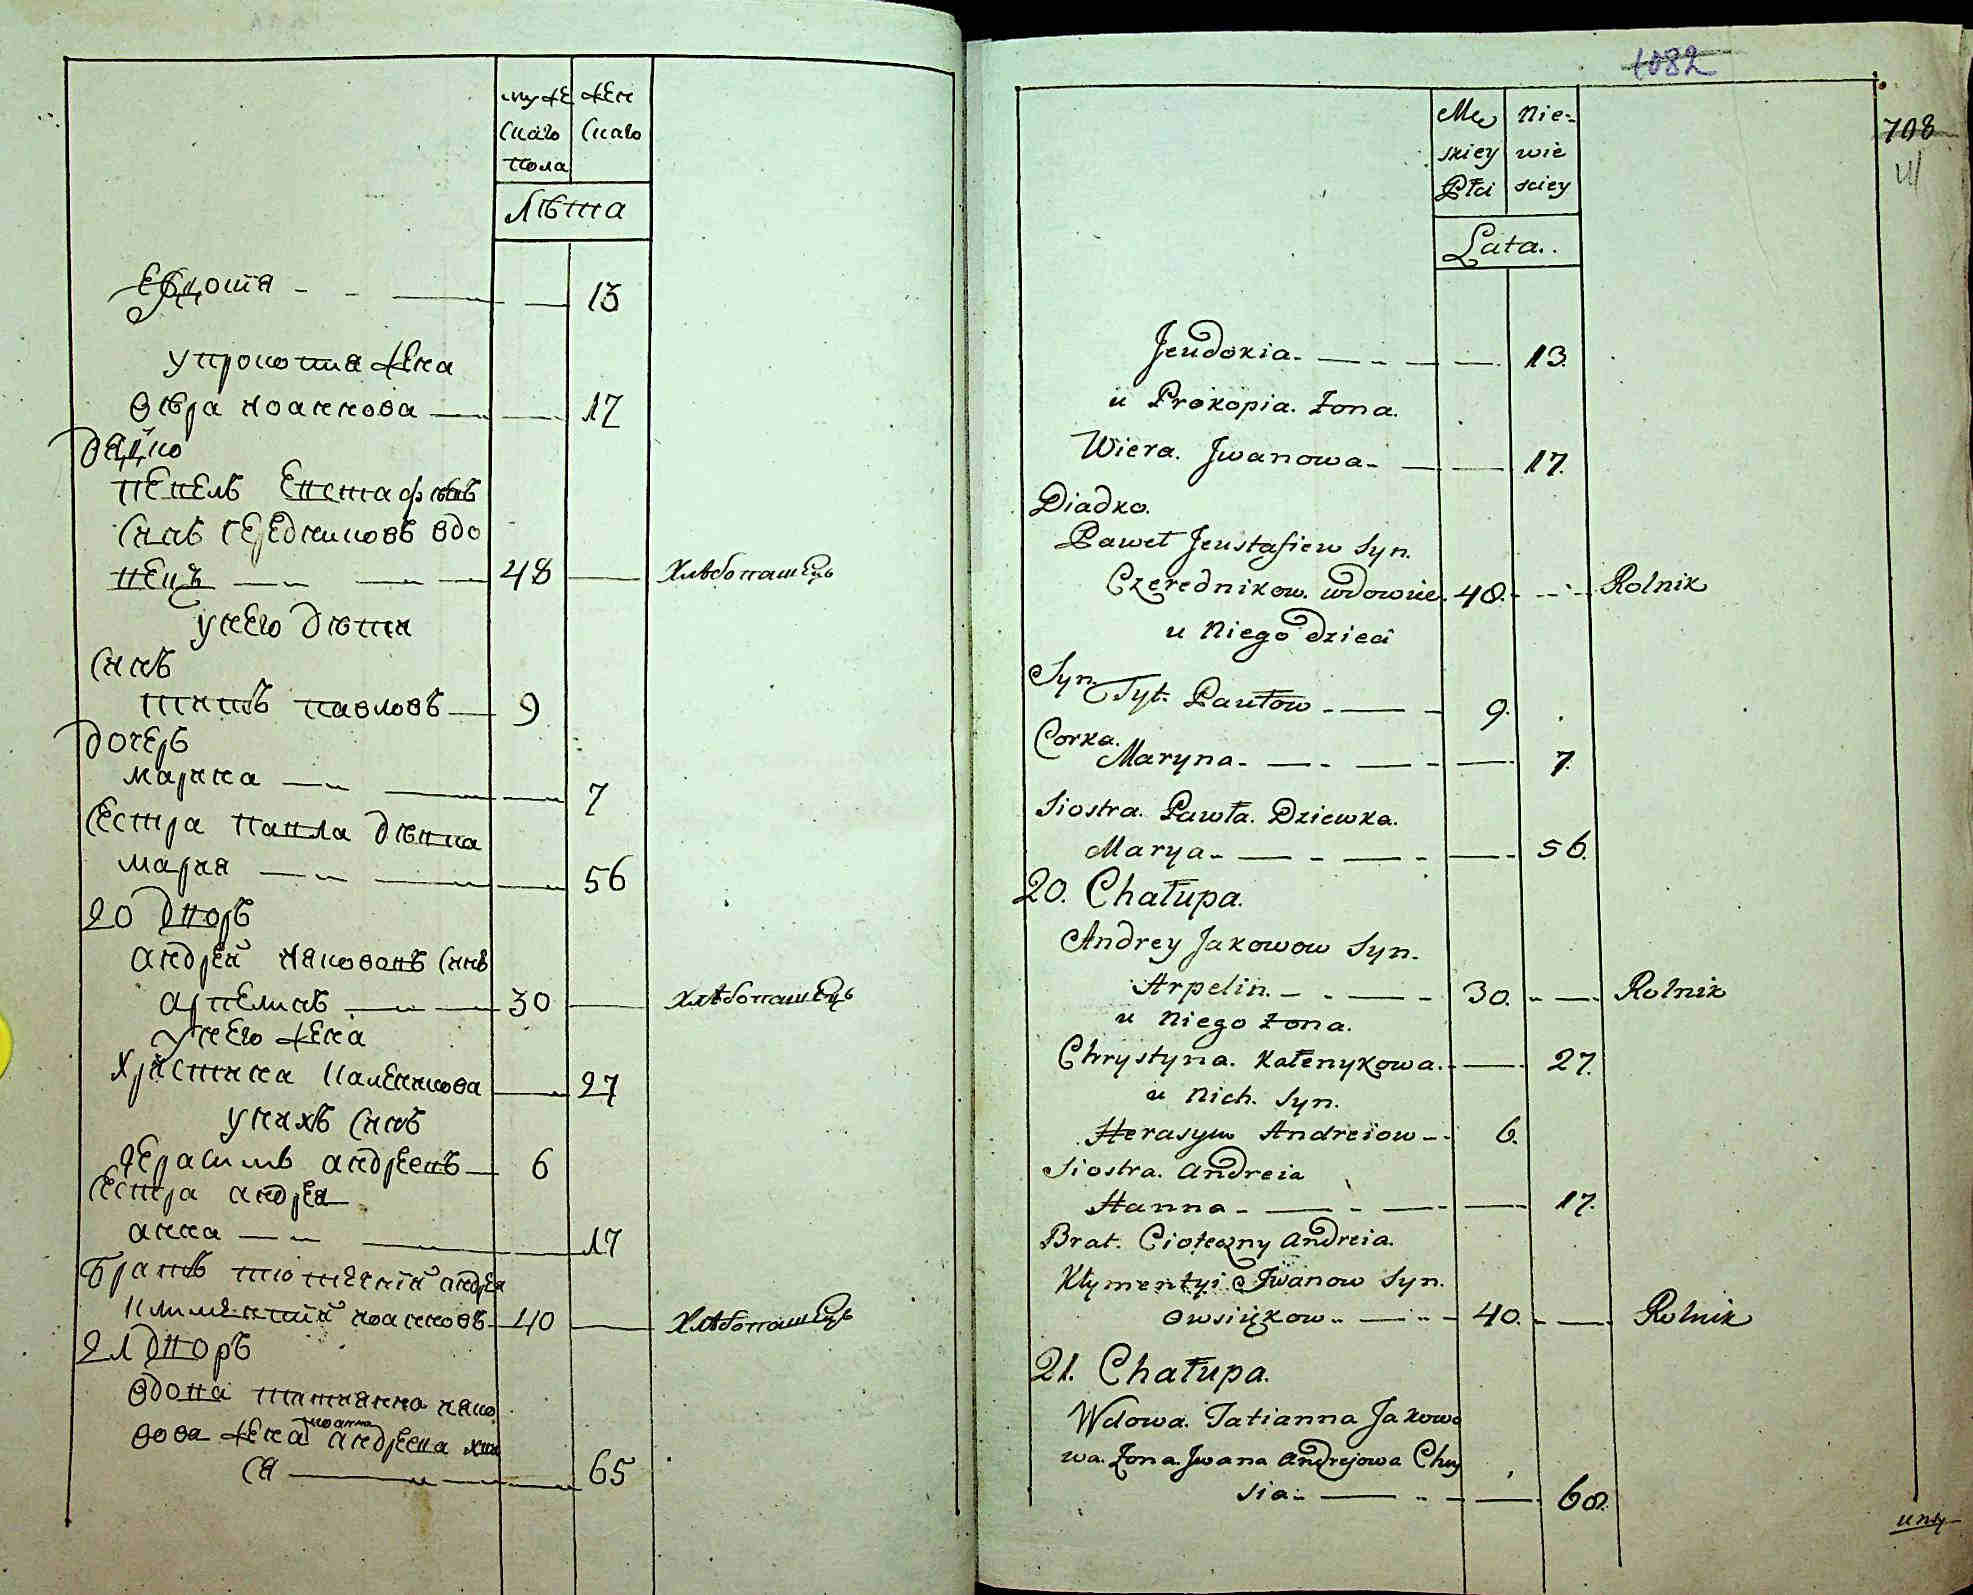 муже
скаго
пола
жен
скаго
Лѣта
Евдокія — 13
у прокопія жена
Вѣра иоаннова — 17
дядко
павелъ евстафіевъ
синъ Середниковъ вдо
вецъ — 48 — Хлѣбопашецъ
у него дѣти
синъ
титъ павловъ — 9
дочеръ
марина — 7
сестра павла дѣвка
мария — 56
20 дворъ
андрей иякововъ синъ
арпелинъ — 30 — хлѣбопашецъ
у него жена
христина каленикова — 27
у нихъ синъ
герасимъ андреевъ — 6
сестра андрея
анна — 17
братъ тютечній андрея
климентій иоанновъ — 40 — хлѣбопашецъ
21 дворъ
вдова татианна иако
вова жена иоанна андреева
ся — 65
1082
708
Mę
skiey
Płci
Nie-
wie
sciey
Lata.
Jeudokia. — 13.
u Prokopia. Żona.
Wiera. Jwanowa — 17.
Diadko.
Paweł Jeustafiew Syn.
Czerednikow. wdowiec. 48. — Rolnik
u Niego dzieci
Syn. Tyt. Pawłow — 9.
Corka.
Maryna — 7.
Siostra. Pawła. Dziewka.
Marya — 56.
20. Chałupa.
Andrey Jakowow Syn.
Arpelin. — 30. — Rolnik
u Niego żona.
Chrystyna. Kałenykowa. — 27.
u Nich. Syn.
Herasym Andreiow — 6.
Siostra. Andreia
Hanna — 17.
Brat. Cioteczny Andreia.
Kłymentyi Jwanow Syn.
Owsiękow — 40. — Rolnik
21. Chałupa.
Wdowa. Tatianna Jakowo
wa. Żona Jwana Andrejowa Chwy
sia — 60.